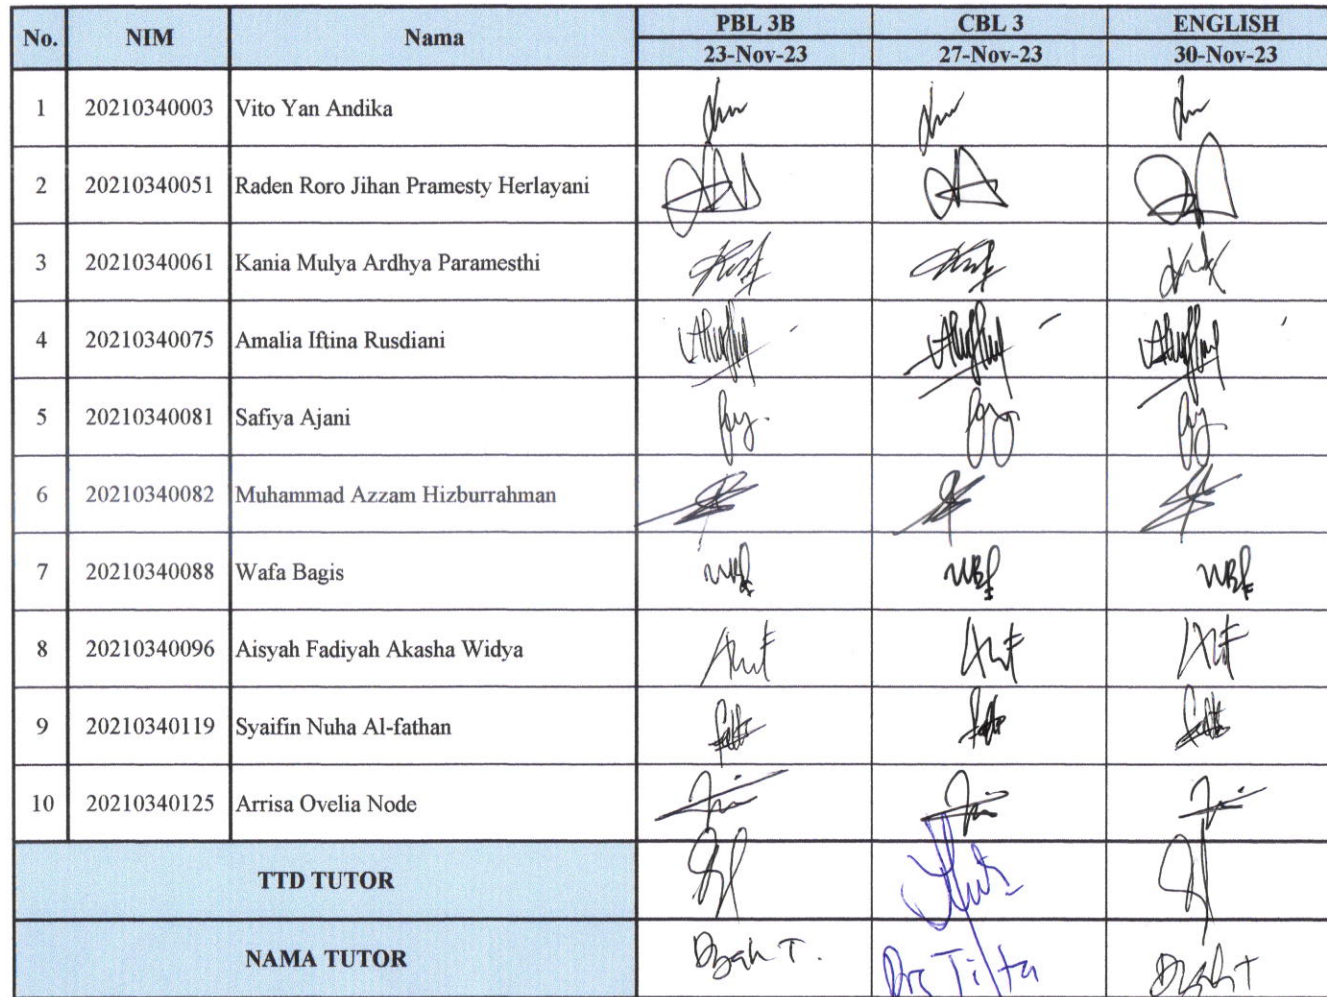 No. NIM Nama PBL 3B CBL 3 ENGLISH
23-Nov-23 27-Nov-23 30-Nov-23
1 20210340003 Vito Yan Andika
2 20210340051 Raden Roro Jihan Pramesty Herlayani
3 20210340061 Kania Mulya Ardhya Paramesthi
4 20210340075 Amalia Iftina Rusdiani
5 20210340081 Safiya Ajani
6 20210340082 Muhammad Azzam Hizburrahman
7 20210340088 Wafa Bagis
8 20210340096 Aisyah Fadiyah Akasha Widya
9 20210340119 Syaifin Nuha Al-fathan
10 20210340125 Arrisa Ovelia Node
TTD TUTOR
NAMA TUTOR Dyah T.